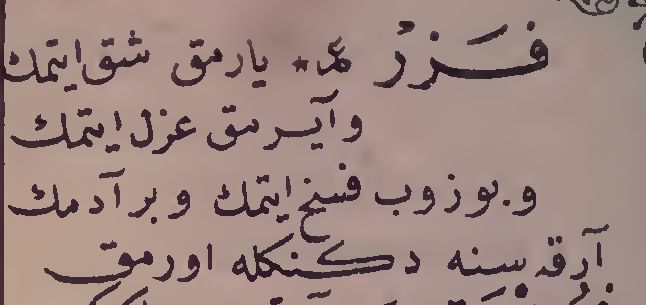 فَزرْ عـ * یارمق شق ایتمك
وآیـرمق عزل ایتمك
و بوزوب فسخ ایتمك و بر آدمك
آرقه سنه دكـنكله اورمق